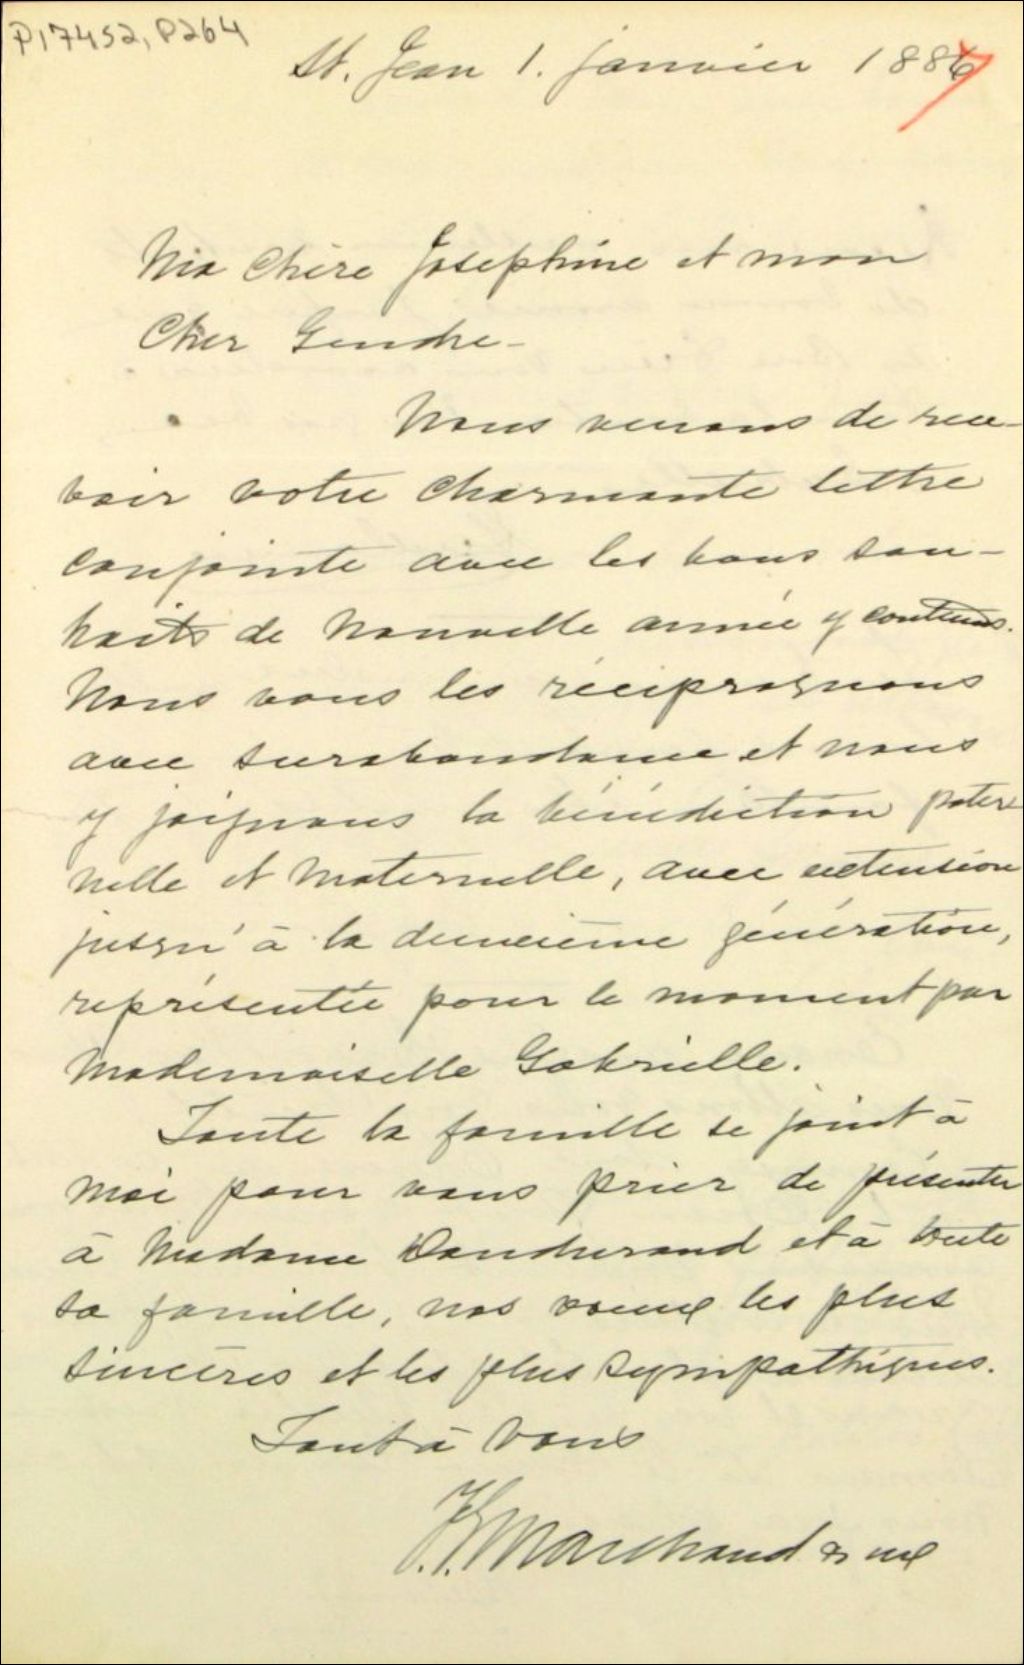 P17452, P264
St. Jean 1. janvier 1887
Ma chère Josephine et mon
Cher Gendre -
Nous venons de rece-
voir votre charmante lettre
conjointe avec les bons sou-
haits de Nouvelle année y contenus.
Nous vous les réciproquons
avec surabondance et nous
y joignons la bénédiction pater
nelle et maternelle, avec extension
jusqu'à la deuxième génération,
représentée pour le moment par
Mademoiselle Gabrielle.
Toute la famille se joint à
moi pour vous prier de présenter
à Madame Dandurand et à toute
sa famille, nos voeux les plus
sincères et les plus sympathiques.
Tout à vous
F.G. Marchand & ux